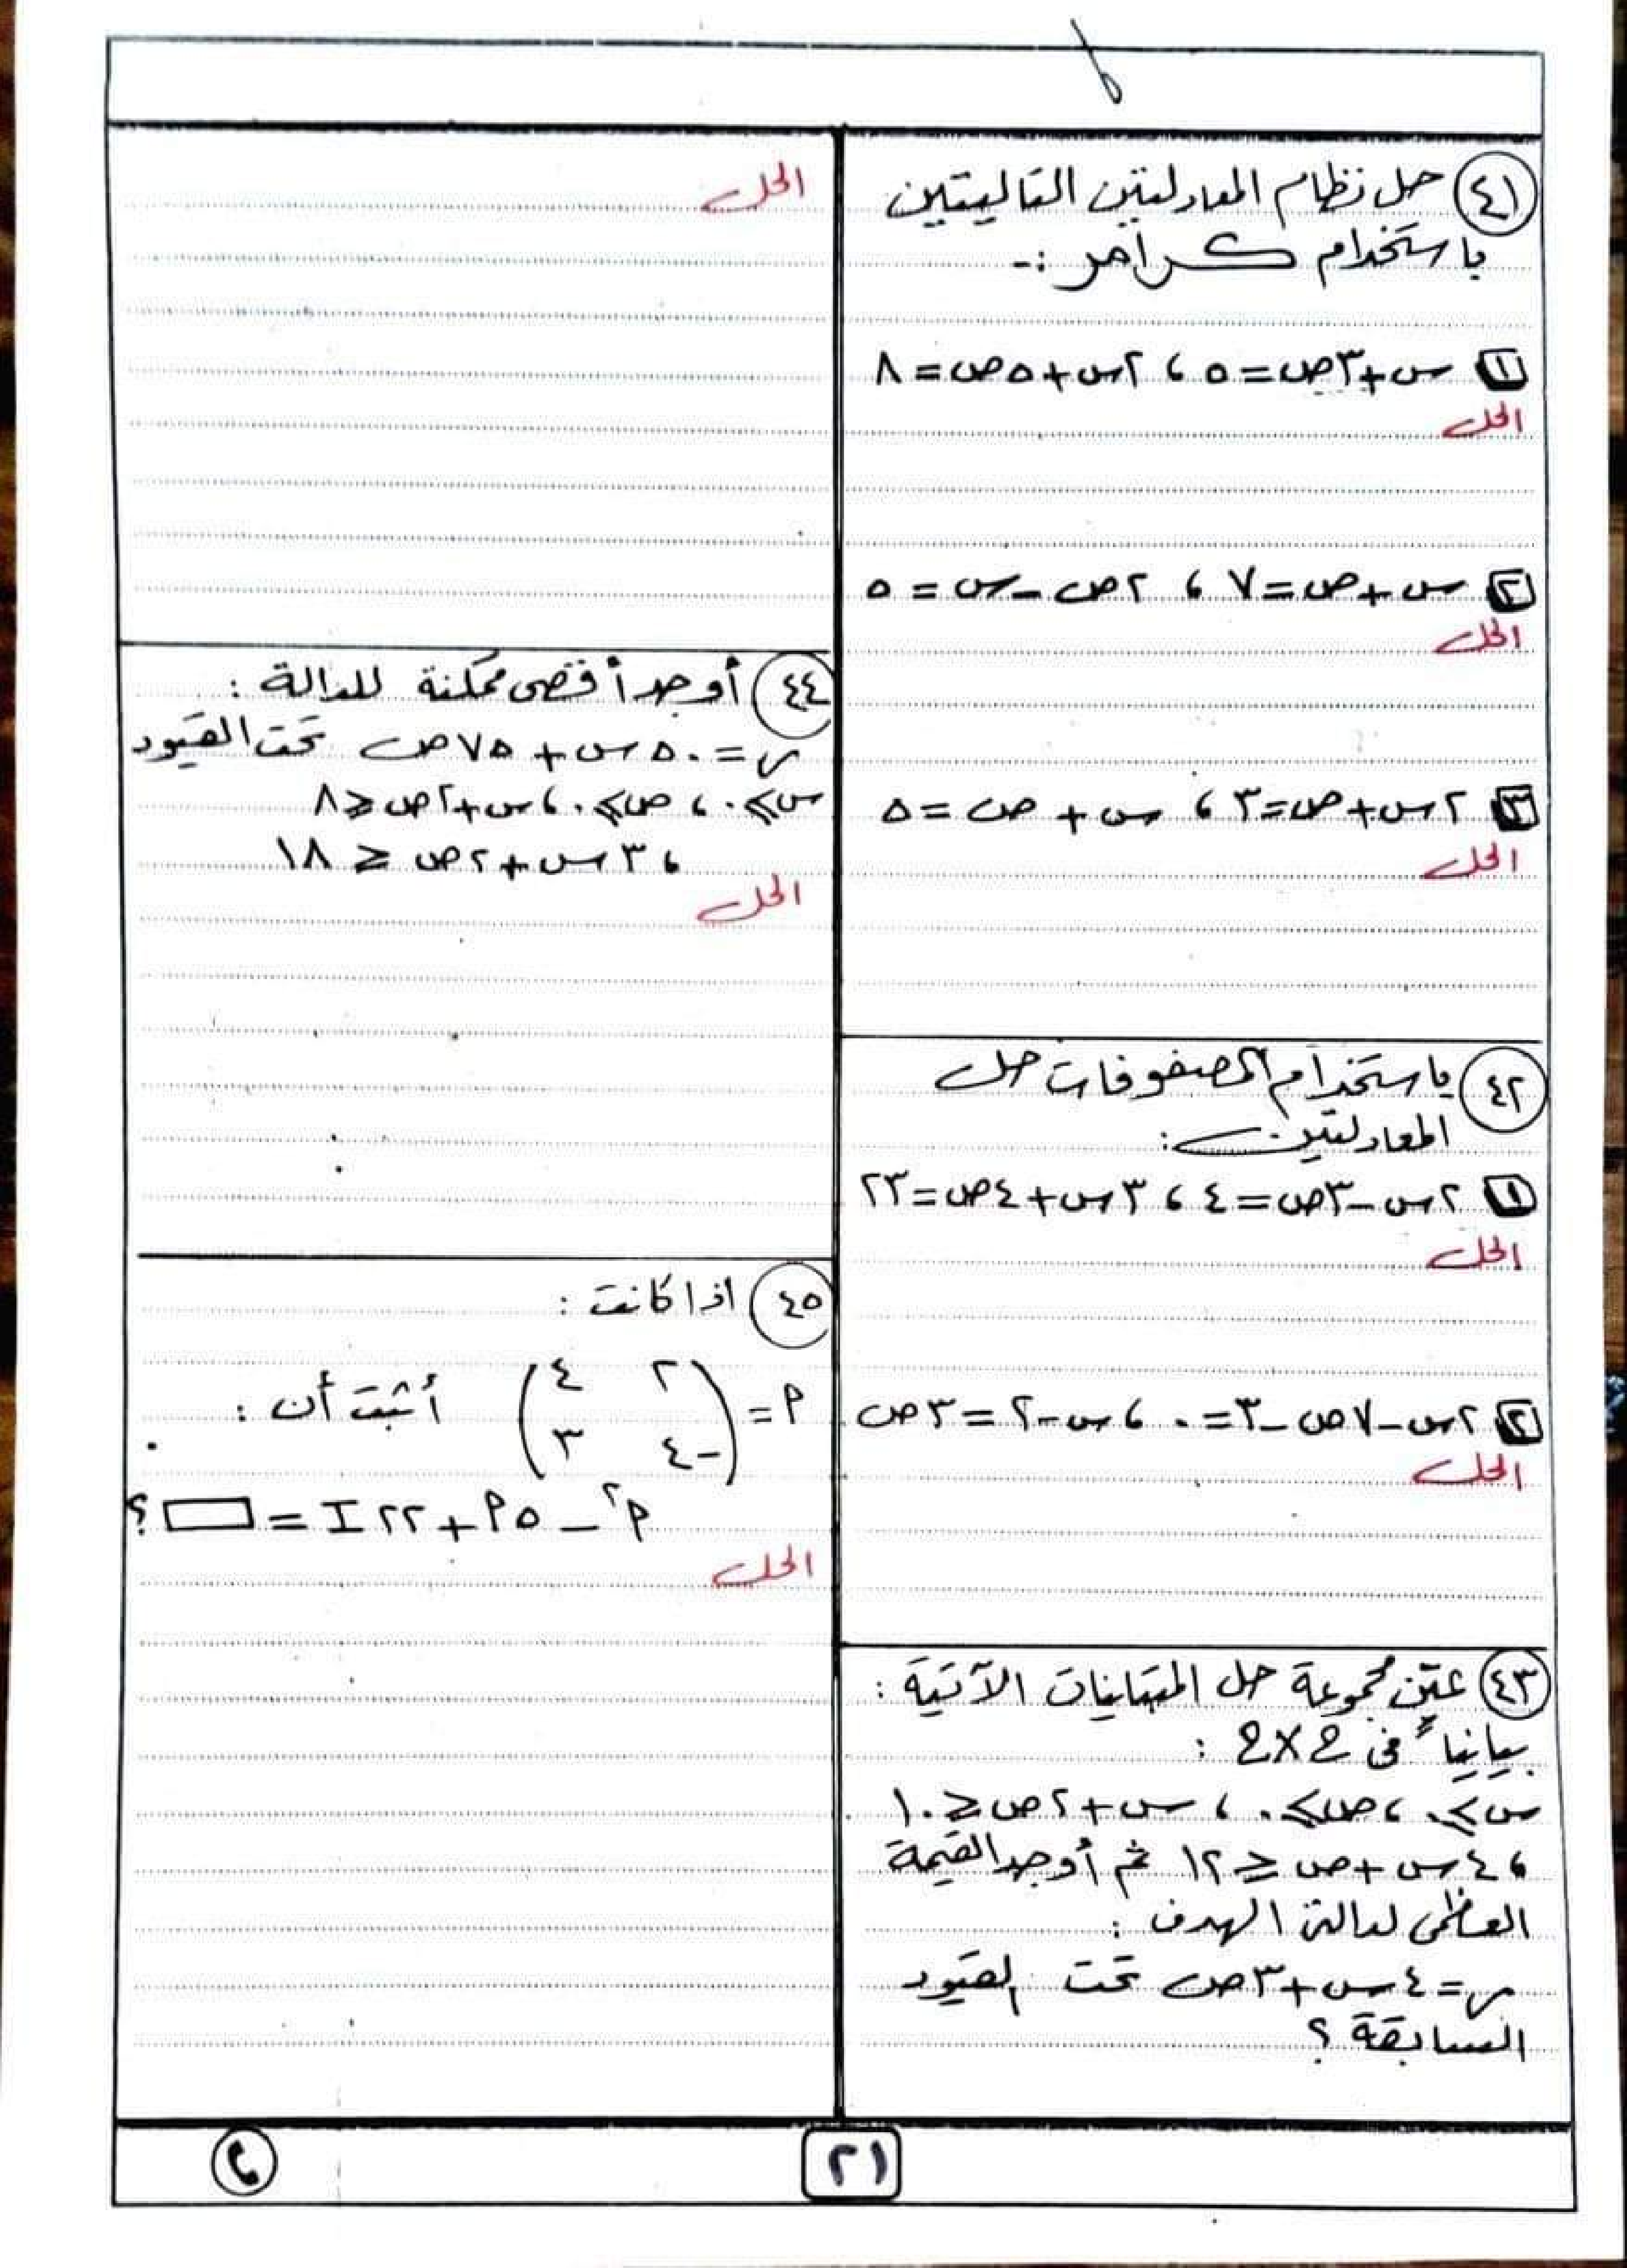 ٤١ حل نظام المعادلتين التاليتين
باستخدام كرامر :-
١ س+٣ص=٥ ، ٢س+٥ص=٨
الحل
٢ س+ص=٧ ، ٢ص-س=٥
الحل
٣ ٢س+ص=٣ ، س+ص=٥
الحل
٤٢ باستخدام المصفوفات حل
المعادلتين :
١ ٢س-٣ص=٤ ، ٣س+٤ص=٢٣
الحل
٢ ٢س-٧ص-٣=٠ ، س-٢=٣ص
الحل
٤٣ عيّن مجموعة حل المتباينات الآتية :
بيانياً فى ح×ح :
س≥٠ ، ص≥٠ ، س+٢ص≤١٠
، ٤س+ص≤١٢ ثم أوجد القيمة
العظمى لدالة الهدف :
ر=٤س+٣ص تحت القيود
السابقة ؟
الحل
٤٤ أوجد أقصى ممكنة للدالة :
ر=٥٠س+٧٥ص تحت القيود
س≥٠ ، ص≥٠ ، س+٢ص≤٨
، ٣س+٢ص≤١٨
الحل
٤٥ اذا كانت :
أ= (٢ ٤ أثبت أن :
-٤ ٣)
أ٢-٥أ+٢٢I=▭؟
الحل
٢١